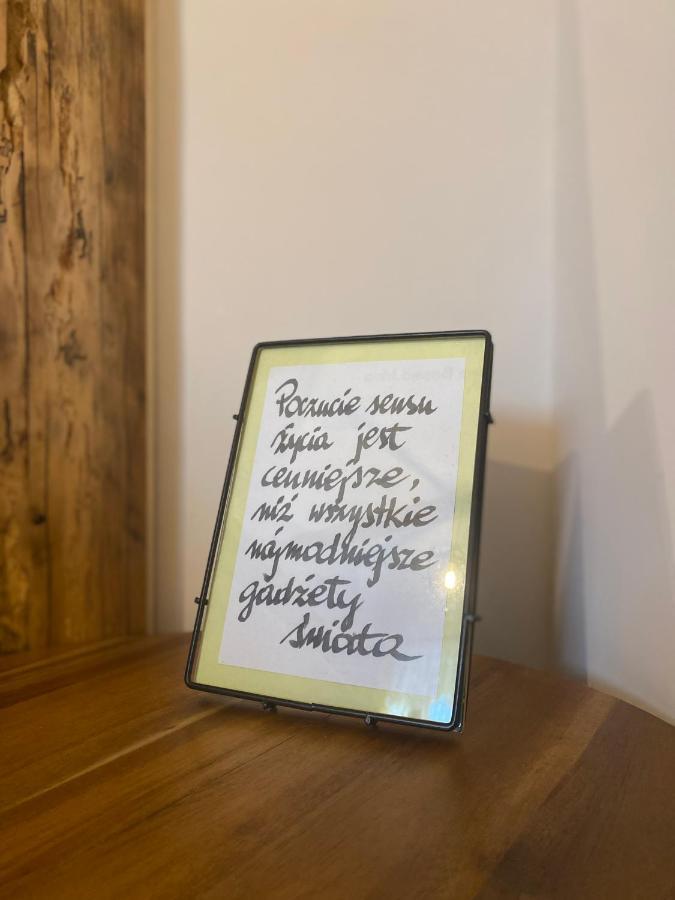 Poczucie sensu
życia jest
cenniejsze,
niż wszystkie
najmodniejsze
gadżety
świata